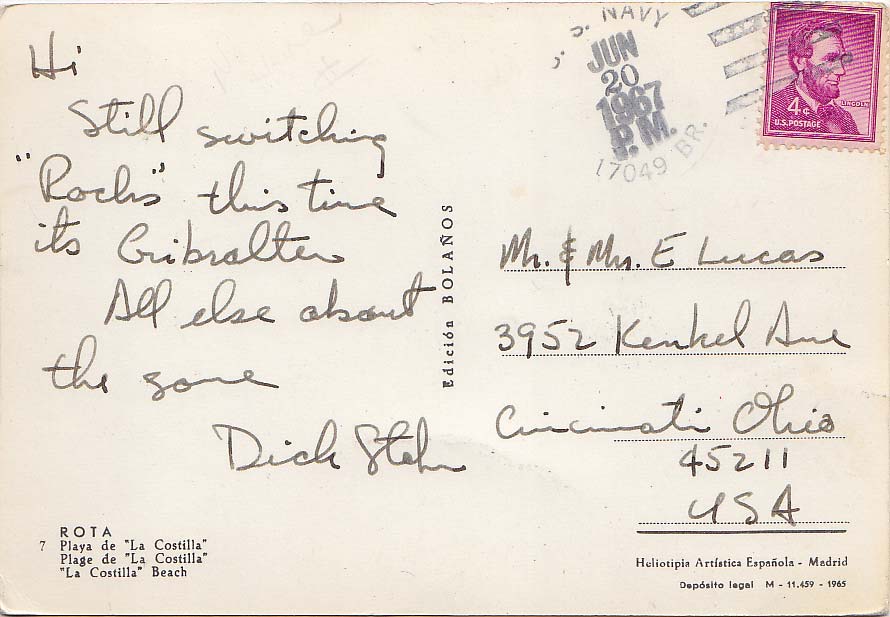 Hi
Still switching
"Rocks" this time
its Gribralter
All else about
the same
Dick Stehr
Edición BOLAÑOS
U. S. NAVY
JUN
20
1967
P.M.
17049 BR.
4¢
LINCOLN
U.S. POSTAGE
Mr. & Mrs. E Lucas
3952 Kenkel Ave
Cincinnati Ohio
45211
USA
7
ROTA
Playa de "La Costilla"
Plage de "La Costilla"
"La Costilla" Beach
Heliotipia Artística Española - Madrid
Depósito legal M - 11.459 - 1965